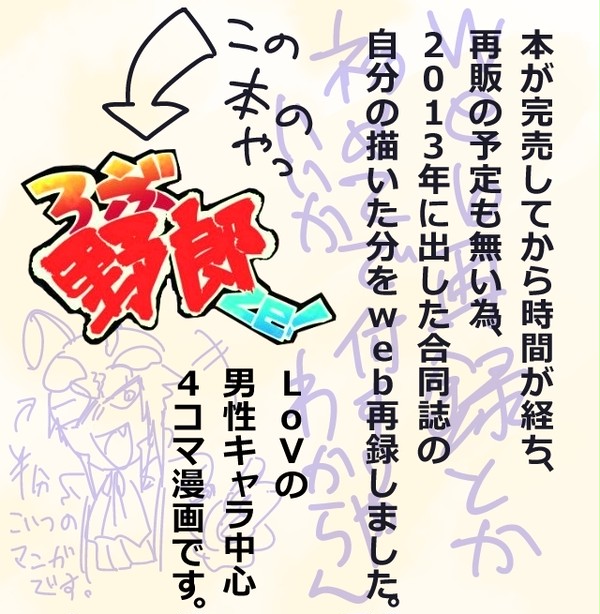 本が完売してから時間が経ち、
再販の予定も無い為、
2013年に出した合同誌の
自分の描いた分をweb再録しました。
この
本の
やつ
ろぶ
野郎
ze!
LoVの
男性キャラ中心
4コマ漫画です。
半分
こいつの
マンガ
です。